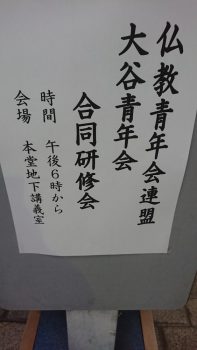 仏教青年会連盟
大谷青年会
合同研修会
時間　午後6時から
会場　本堂地下講義室